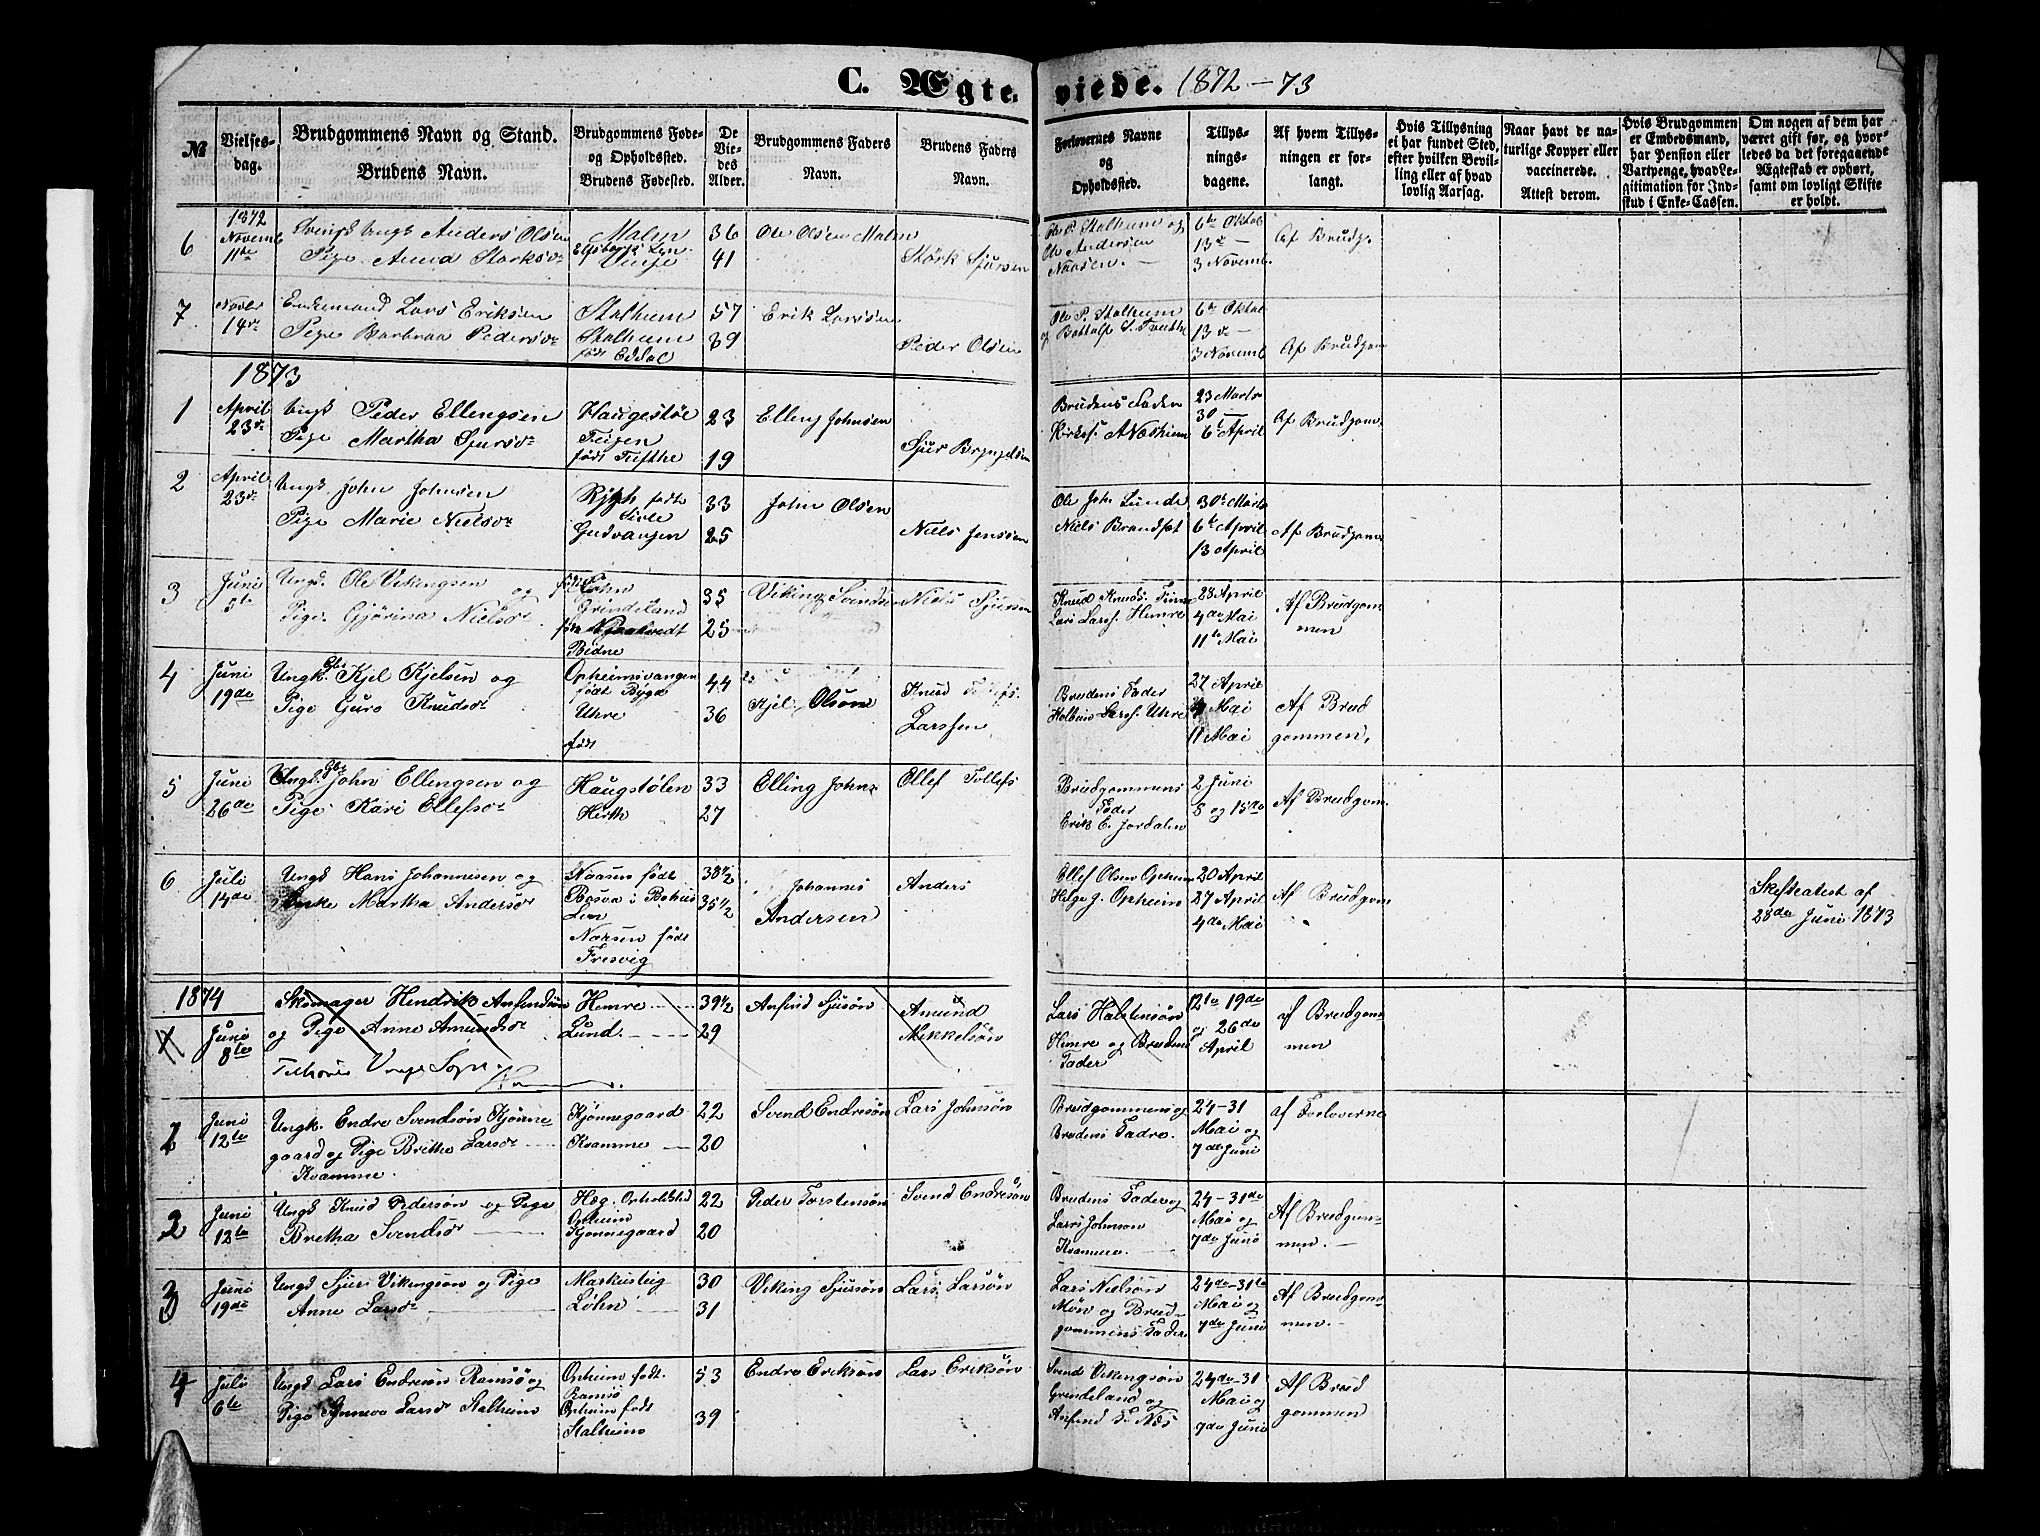 C. Ægteviede. 1872-73
№
Vielses-
dag.
Brudgommens Navn og Stand.
Brudens Navn.
Brudgommens Føde-
og Opholdssted.
Brudens Fødested.
De
Vie-
des
Alder.
Brudgommens Faders
Navn.
Brudens Faders
Navn.
Forlovernes Navne
og
Opholdssted.
Tillys-
nings-
dagene.
Af hvem Tillys-
ningen er for-
langt.
Hvis Tillysning
ei har fundet Sted,
efter hvilken Bevil-
ling eller af hvad
lovlig Aarsag.
Naar havt de na-
turlige Kopper eller
vaccinerede.
Attest derom.
Hvis Brudgommen
er Embedsmand,
har Pension eller
Vartpenge, hvad Le-
gitimation for Ind-
skud i Enke-Cassen.
Om nogen af dem har
været gift før, og hvor-
ledes da det foregaaende
Ægteskab er ophørt,
samt om lovligt Skifte
er holdt.
6
1872
Novemb
11te
Ungk Anders Olsen
Pige Anna Størksdr
Malm
Elfsborgs Len
Vinje
36
41
Ole Olsen Malm
Størk Sjursen
Ole P. Stalheim og
Ole Andersen
Naasen.
6te Oktob
13de —
3 Novemb.
Af Brudg.
7
Novbr
14de
Enkemand Lars Eriksen
Pige Barbraa Pedersdr
Stalheim
Stalheim
født Eddal
57
39
Erik Larssen
Peder Olsen
Ole P. Stalheim
og Bottolf S. Tvinthe
6te Oktob
13de —
3 Novemb
Af Brudgom
1873
1
April
23de
Ungk Peder Ellengsen
Pige Martha Sjursdr
Haugestøe
Feigen
født Tufthe
23
19
Elleng Johnsen
Sjur Brynjelsen
Brudens Fader
Kirkes. A Næsheim
23 Marts
30 —
6te April
Af Brudgom.
2
April
23de
Ungk John Johnsen
Pige Marie Nielsdr
Rygh født
Sivle
Gudvangen
33
25
John Olsen
Niels Jenssen
Ole Joh. Lunde
Niels Brandset
30te Marts
6te April
13 April
Af Brudgom
3
Juni
5te
Ungd. Ole Vikingsen og
Pige. Gjørina Nielsdr
født Løhn
Grindeland
Bidne
35
25
Viking Svendsen
Niels Sjursen
Knud Knuds. Finne
Lars Larss. Himre
28 April
4de Mai
11te Mai
Af Brudgom
men
4
Juni
19de
Ungk. Gbr Kjel Kjelsen og
Pige Guro Knudsdr
Opheimsvangen
født Bygd
Uhre
født
44
36
Kjel Olsen
Knud
Larssen
Brudens Fader
Kolbein Larss. Uhre
27 April
4 Mai
11 Mai
Af Brud
gommen,
5
Juni
26de
Ungd. Gbr John Ellengsen og
Pige Kari Ellefsdr
Haugstølen
Herth
33
27
Elling Johns
Ellef Tollefs
Brudgommens
Fader
Erik E. Jordalen
2 Juni
8 og 15de
Af Brudgom
6
Juli
14de
Ungd Hans Johannesen og
Enke Martha Andersdr
Naasen født
Bosva i Bohus
Len
Narsen født
Fresvig
38½
35½
Johannes
Andersen
Anders
Ellef Olsen Opheim
Helge J. Opheim
20 April
27 April
4de Mai
Af Brudgom
Skifteattest af
28de Juni 1873
1874
Juni
8te
Skomager Hendrik Anfindsøn
og Pige Anne Amundsdr
Tilhører Vangs Sogn
Himre
Lund.
39½
29
Anfind Sjursøn
Amund
Mikkelsøn
Lars Halstensøn
Himre og Brudens
Fader
12te 19de
og 26de
April
af Brudgom
men
Juni
12te
Ungk. Endre Svendsøn Kjønne
gaard og Pige Brithe Larsdr
Kvamme.
Kjønnegaard
Kvamme
22
20
Svend Endresøn
Lars Johnsøn
Brudgommens og
Brudens Fadre.
24-31
Mai og
7de Juni
af Forloverne
2
Juni
12te
Ungd Knud Pedersøn og Pige
Bretha Svendsdr
Hæg. Opholdsted
Opheim
Kjønnegaard
22
20
Peder Torstensøn
Svend Endresøn
Brudens Fader og
Lars Johnson
Kvamme
24-31de
Mai og
7de Juni
Af Brudgom-
men.
3
Juni
19de
Ungd Sjur Vikingsøn og Pige
Anne Larsdr
Markusteig
Løhn
30
31
Viking Sjursøn
Lars Larsøn
Lars Nielsøn
Møn og Brud-
gommens Fader
24de-31te
Mai og
7de Juni
Af Brudgom-
men.
4
Juli
6te
Ungd Lars Endresøn Ramsø og
Pige Synneva Larsdr Stalheim
Opheim født.
Ramsø
Opheim født
Stalheim
53
39
Endre Eriksøn
Lars Eriksøn
Svend Vikingsøn
Grindeland og
Anfind S. Næs
24de-31
Mai og
7de Juni
Af Brud
gommen